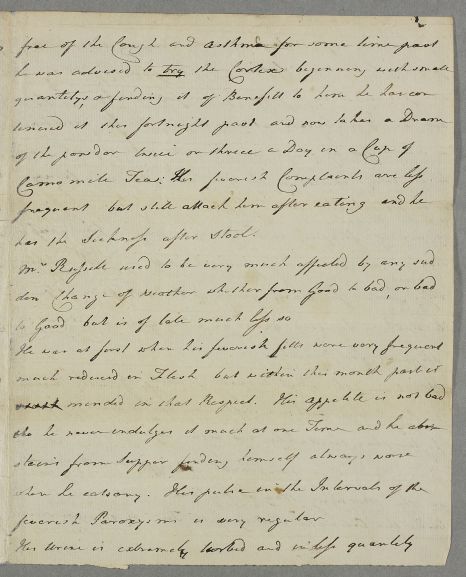 free of the Cough and asthma for some time past
he was advised to try the Cortex beginning with small
quantitys, & finding it of Benefitt to him he has con
tinued it this fortnight past and now takes a Dram
of the powder twice or thrice a Day in a Cup of
Camomile Tea: His feverish Complaints are less
frequent but still attack him after eating and he
has the Sickness after Stool.
Mr. used to be very much affected by any sud
den Change of weather whether from Good to bad, or bad
to Good but is of late much less so
He was at first when his feverish fitts were very frequent
much reduced in Flesh but within this month past is
mended in that Respect. His appetite is not bad
tho he never indulges it much at one Time and he abs
tains from Supper finding himself always worse
when he eats any. His pulse in the Intervals of the
feverish Paroxysms is very regular
His Urine is extremely turbed and in less quantity